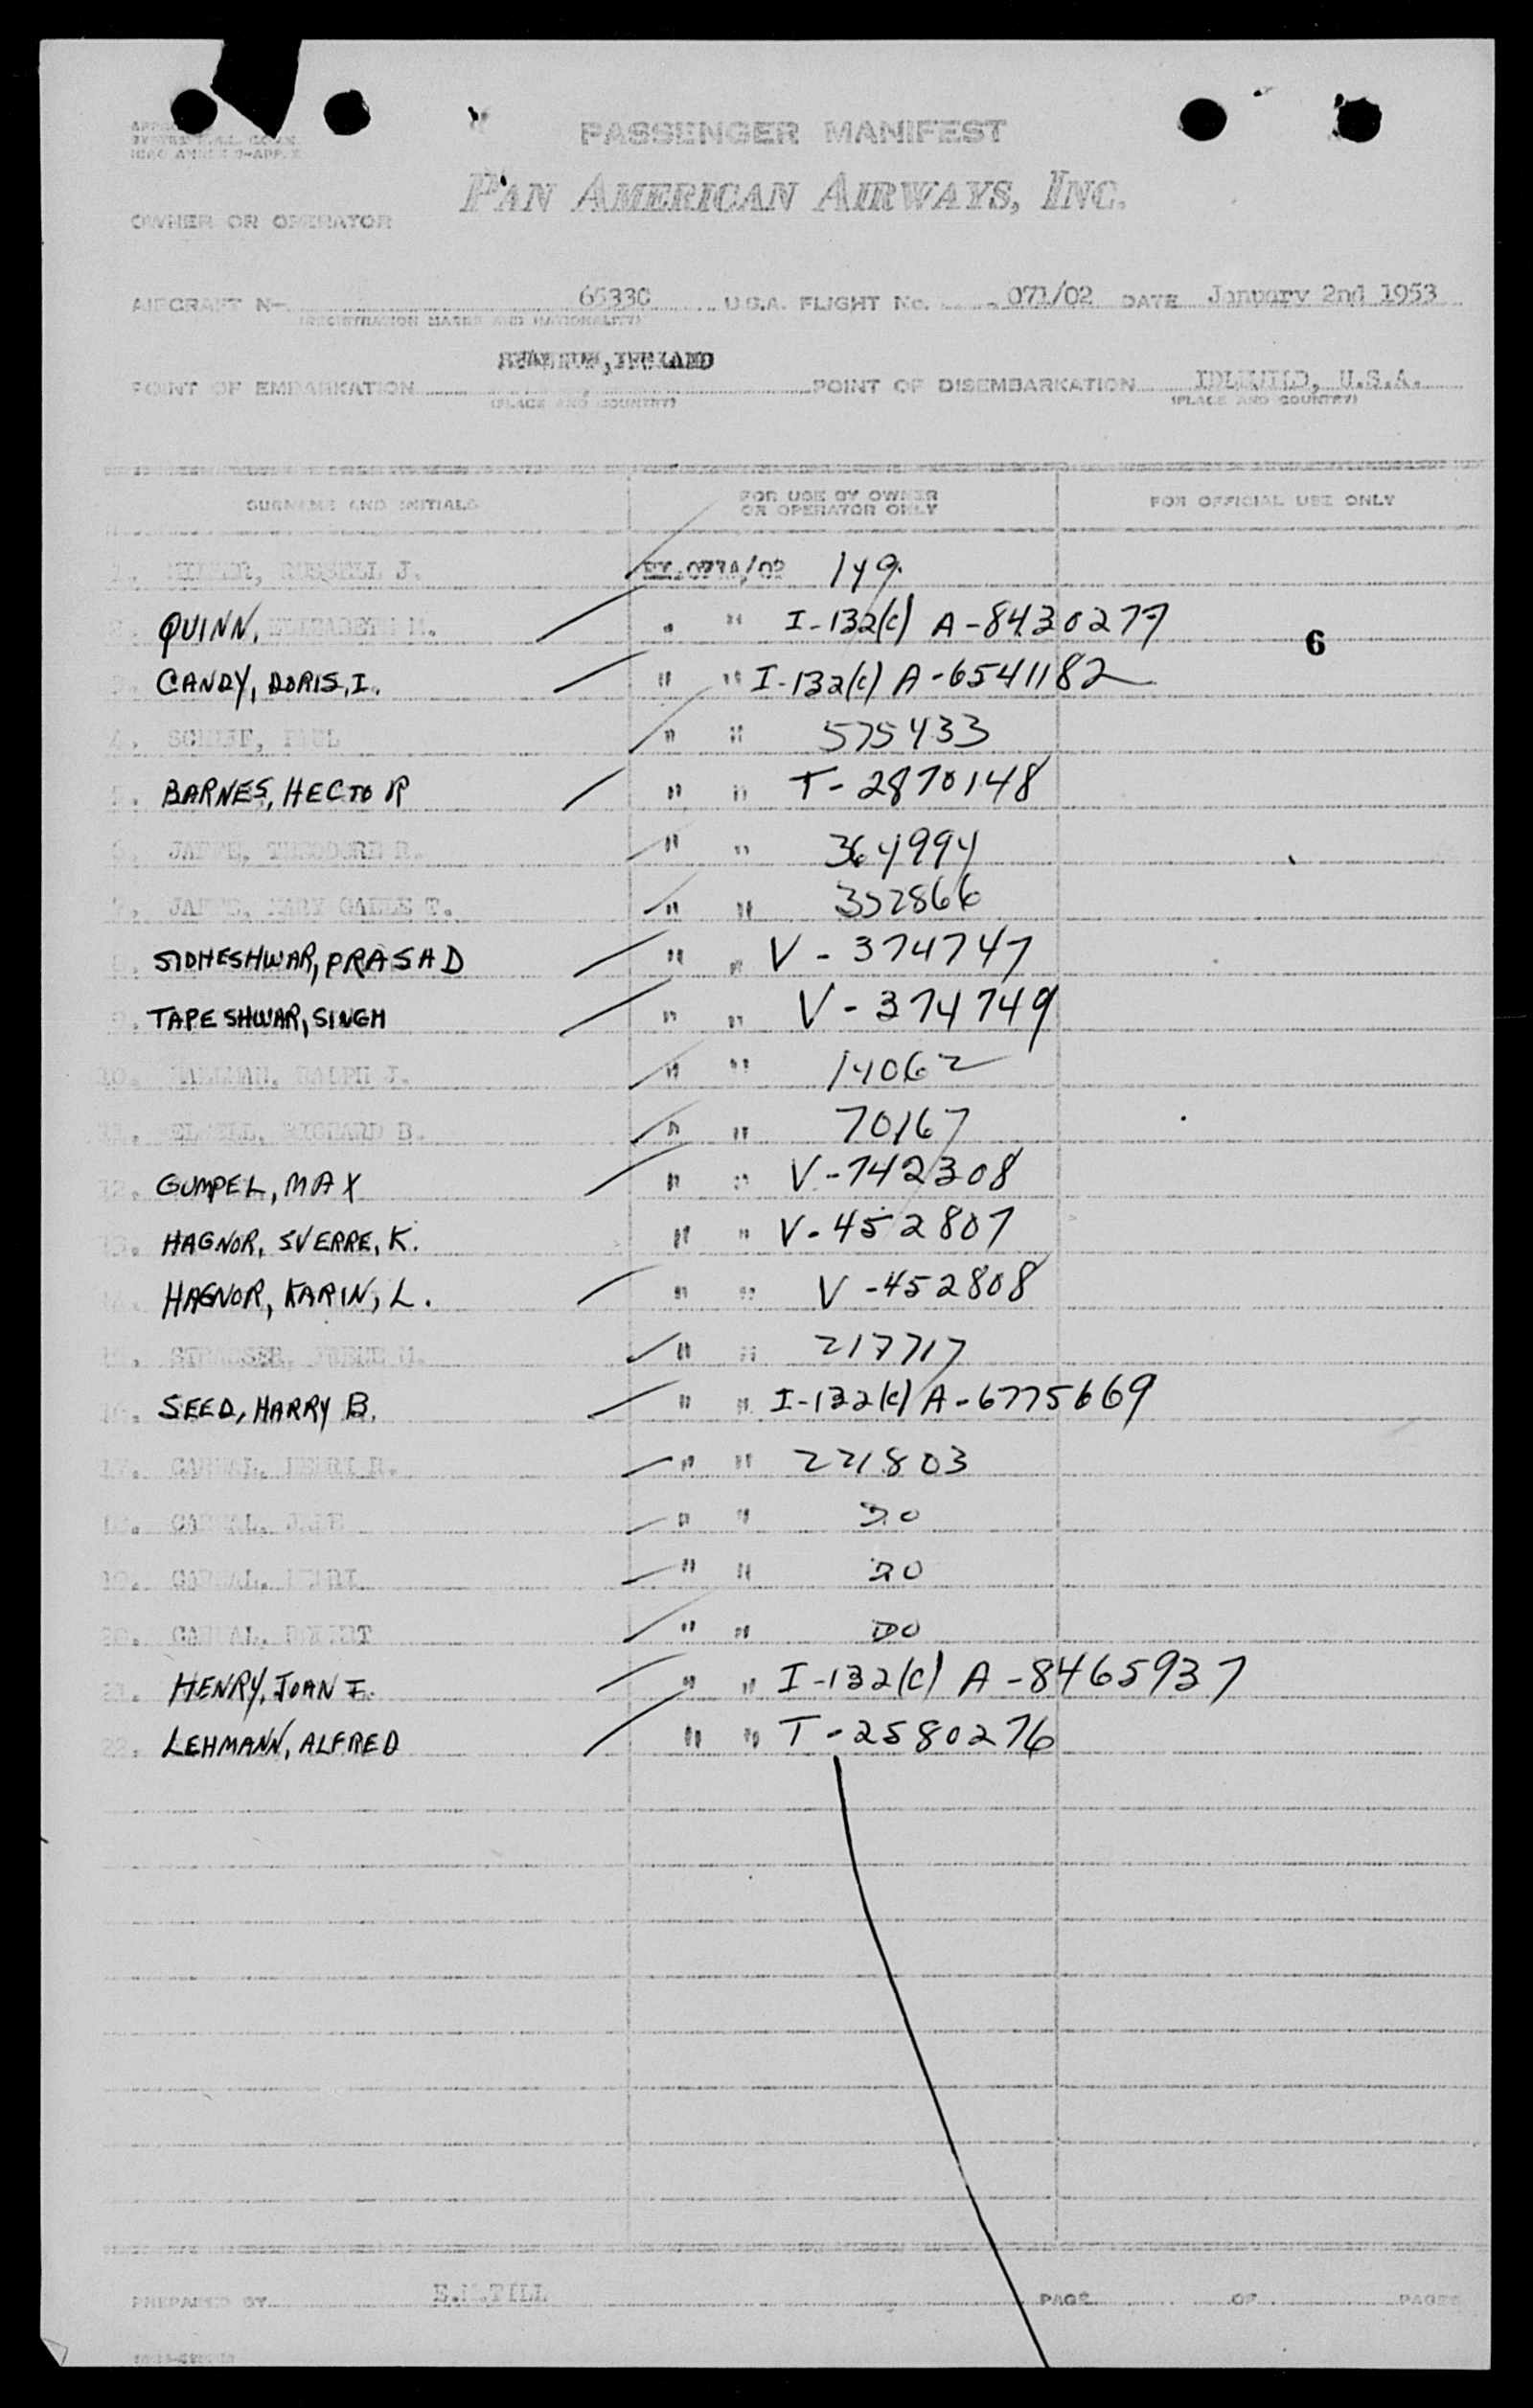 PASSENGER MANIFEST
PAN AMERICAN AIRWAYS, INC.
OWNER OR OPERATOR
AIRCRAFT N- 6533C U.S.A. FLIGHT No. 071/02 DATE January 2nd 1953
(REGISTRATION MARKS AND NATIONALITY)
POINT OF EMBARKATION IRELAND POINT OF DISEMBARKATION IDLEWILD, U.S.A.
(PLACE AND COUNTRY) (PLACE AND COUNTRY)
SURNAME AND INITIALS FOR USE BY OWNER OR OPERATOR ONLY FOR OFFICIAL USE ONLY
1. J. 149.
2. QUINN, ELIZABETH M. " " I-132(c) A-8430277 6
3. CANDY, DORIS, I. " " I-132(c) A-6541182
4. PAUL " " 575433
5. BARNES, HECTOR " " T-2870148
6. THEODORE R. " " 364994
7. MARY T. " " 352866
8. SIDHESHWAR, PRASAD " " V-374747
9. TAPESHWAR, SINGH " " V-374749
10. RALPH J. " " 14062
11. RICHARD B. " " 70167
12. GUMPEL, MAX " " V-742308
13. HAGNOR, SVERRE, K. " " V-452807
14. HAGNOR, KARIN, L. " " V-452808
15. " " 217717
16. SEED, HARRY B. " " I-132(c) A-6775669
17. " " 221803
18. " " DO
19. " " DO
20. " " DO
21. HENRY, JOAN I. " " I-132(c) A-8465937
22. LEHMANN, ALFRED " " T-2580276
PREPARED BY PAGE OF PAGES